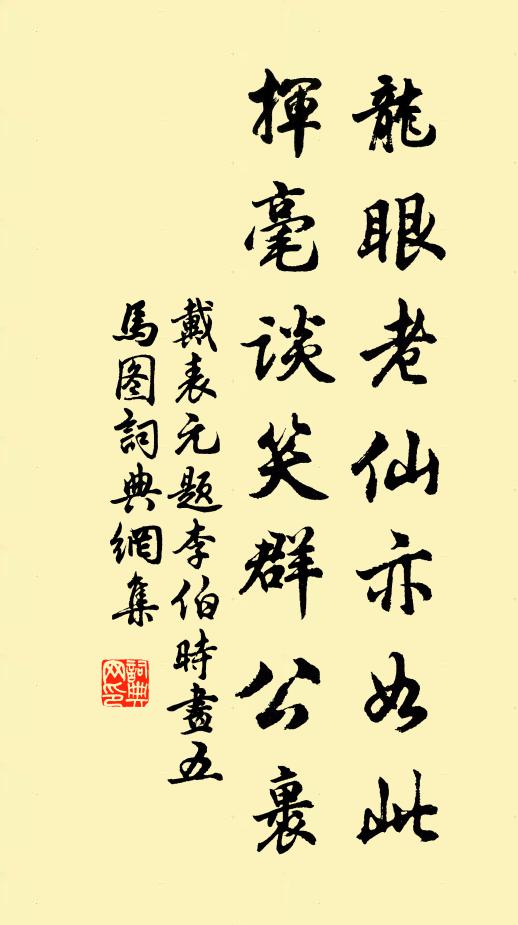 龍眼老仙亦如此
揮毫談笑群公裏
戴表元題李伯時畫五
馬圖詞典網集
詞典
网印